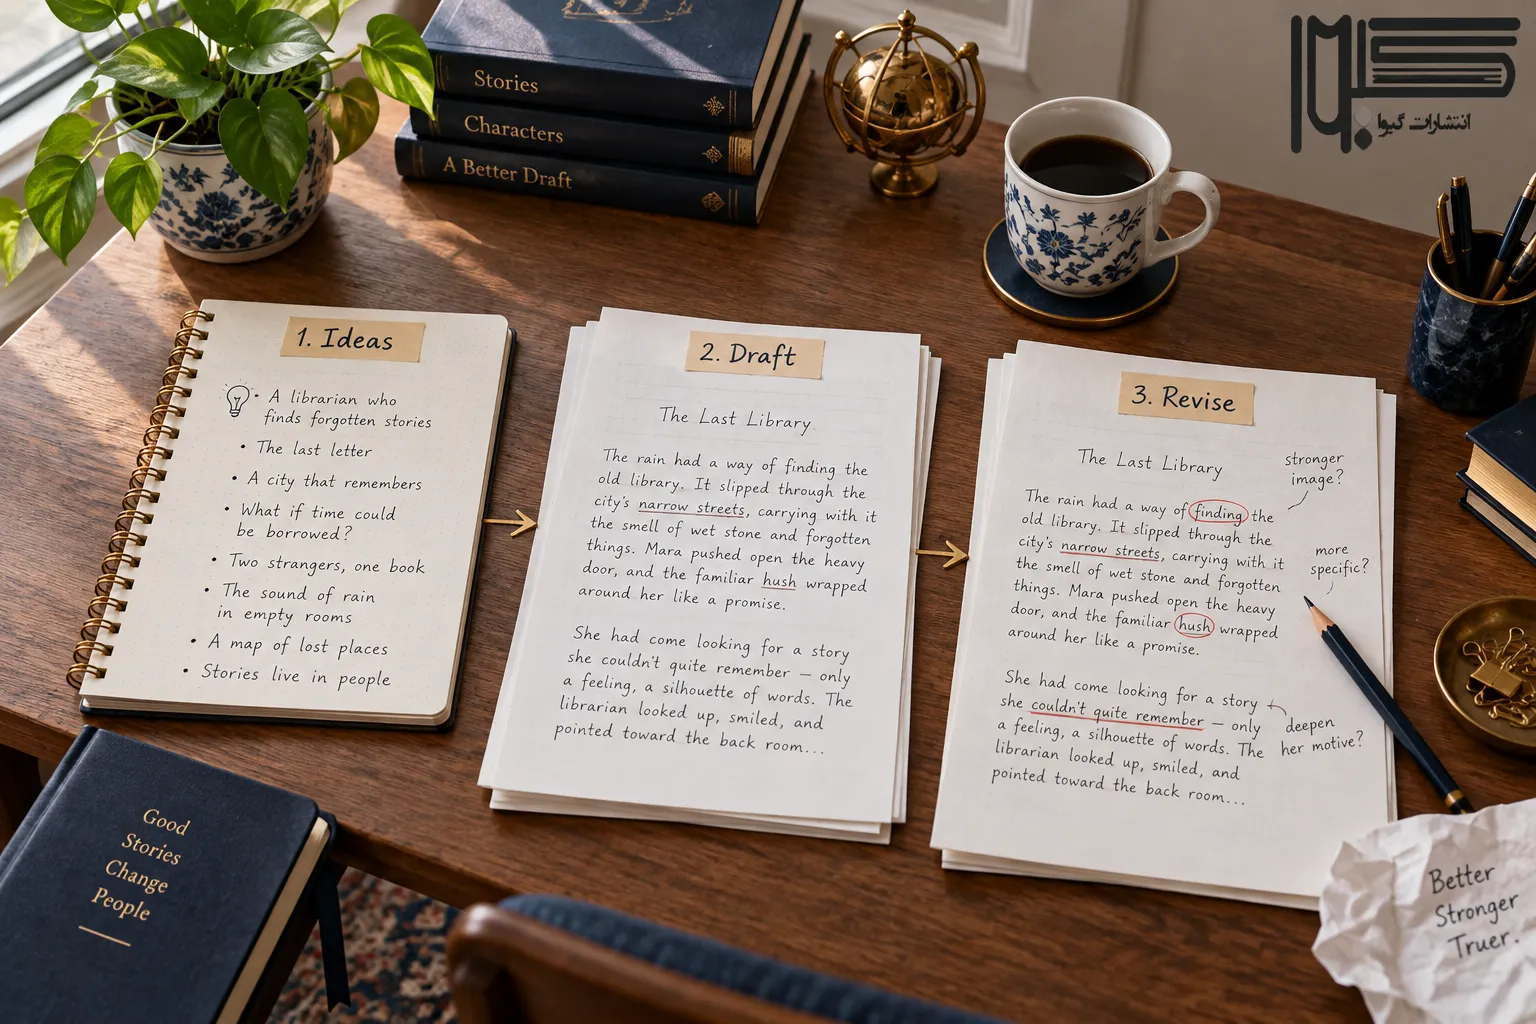 Stories
Characters
A Better Draft
انتشارات گیوا
1. Ideas
A librarian who
finds forgotten stories
• The last letter
• A city that remembers
• What if time could
be borrowed?
• Two strangers, one book
• The sound of rain
in empty rooms
• A map of lost places
• Stories live in people
2. Draft
The Last Library
The rain had a way of finding the
old library. It slipped through the
city's narrow streets, carrying with it
the smell of wet stone and forgotten
things. Mara pushed open the heavy
door, and the familiar hush wrapped
around her like a promise.
She had come looking for a story
she couldn't quite remember — only
a feeling, a silhouette of words. The
librarian looked up, smiled, and
pointed toward the back room...
3. Revise
The Last Library
The rain had a way of finding the
old library. It slipped through the
city's narrow streets, carrying with it
the smell of wet stone and forgotten
things. Mara pushed open the heavy
door, and the familiar hush wrapped
around her like a promise.
She had come looking for a story
she couldn't quite remember — only
a feeling, a silhouette of words. The
librarian looked up, smiled, and
pointed toward the back room...
stronger
image?
more
specific?
deepen
her motive?
Good
Stories
Change
People
Better
Stronger
Truer.